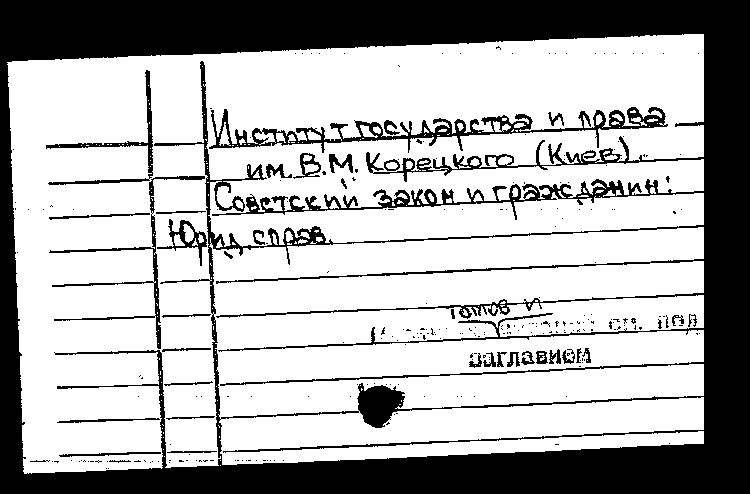 Институт государства и права
им. В.М. Корецкого (Киев).
Советский закон и гражданин:
Юрид. справ.
томов и
см. под
заглавием